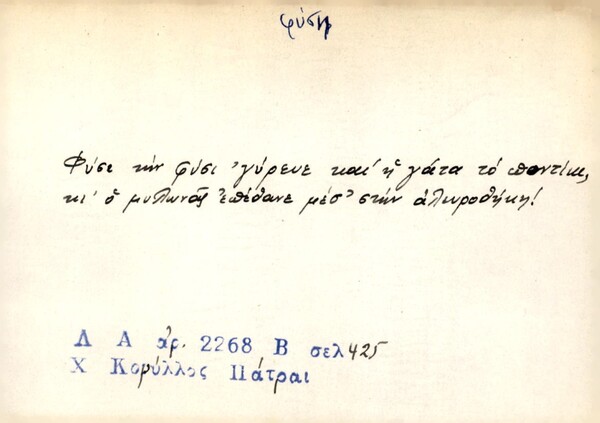 φύση
Φύσι τὴν φύσι 'γύρευε καὶ ἡ γάτα τὸ ποντίκι,
κι' ὁ μυλωνᾶς ἐπέθανε μέσ' στὴν ἀλευροθήκη!
Λ Α ἀρ. 2268 Β σελ 425
Χ Κορύλλος Πάτραι